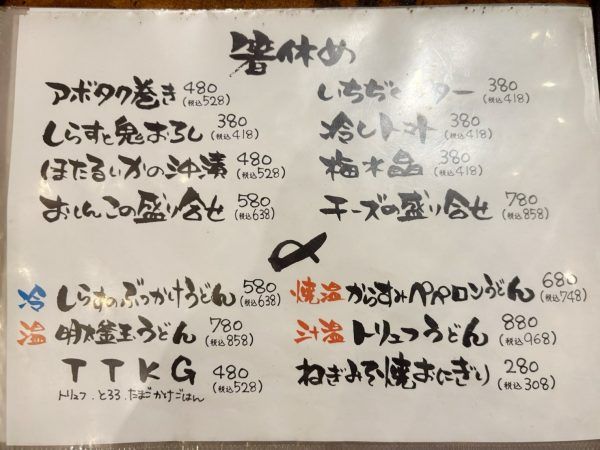 箸休め
アボタク巻き 480 (税込528)
しらすと鬼おろし 380 (税込418)
ほたるいかの沖漬 480 (税込528)
おしんこの盛り合せ 580 (税込638)
いちぢくバター 380 (税込418)
冷しトマト 380 (税込418)
梅水晶 380 (税込418)
チーズの盛り合せ 780 (税込858)
〆
冷 しらすのぶっかけうどん 580 (税込638)
温 明太釜玉うどん 780 (税込858)
TTKG 480 (税込528)
トリュフ、とろろ、たまごかけごはん
焼温 からすみペペロンうどん 680 (税込748)
汁温 トリュフうどん 880 (税込968)
ねぎみそ焼おにぎり 280 (税込308)